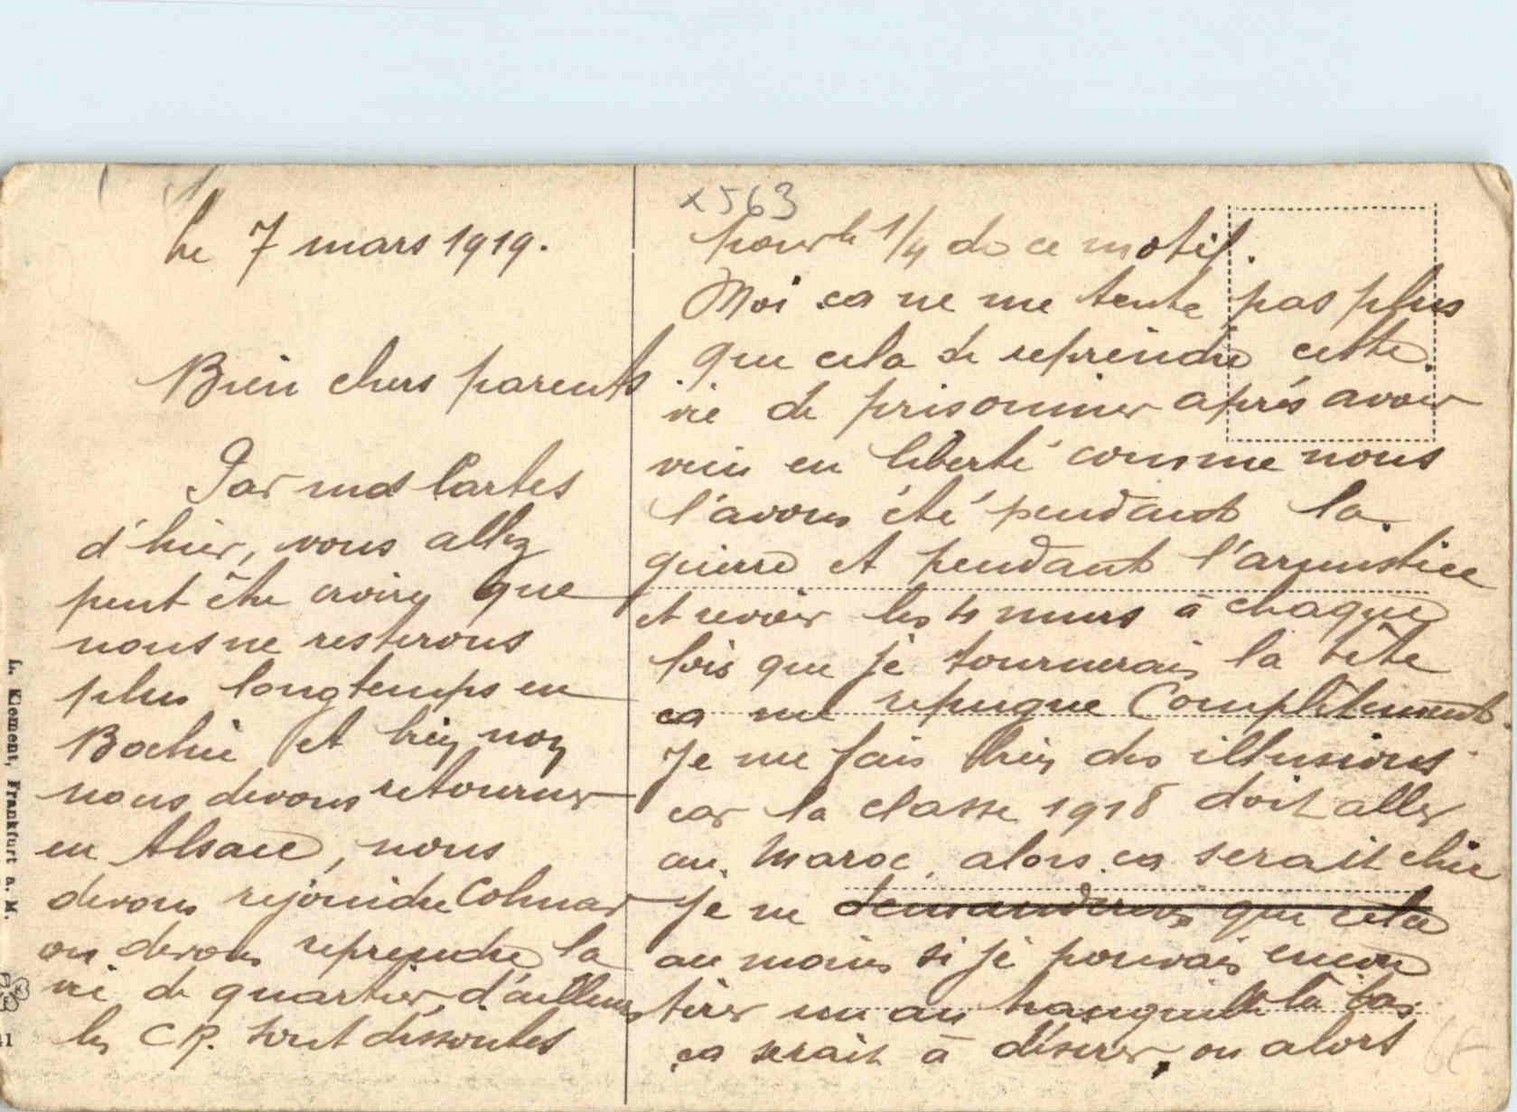 le 7 mars 1919.
Bien chers parents
Par mes Cartes
d'hier, vous allez
peut être croire que
nous ne resterons
plus longtemps en
Bochie et bien non
nous devons retourner
en Alsace, nous
devons rejoindre Colmar
ou devons reprendre la
vie de quartier, d'ailleurs
les CR. sont dissoutes
x563
pour le 1/4 de ce motif.
Moi ca ne me tente pas plus
que cela de reprendre cette
vie de prisonnier après avoir
vécu en liberté comme nous
l'avons été pendant la
guerre et pendant l'armistice
et revoir les 4 murs à chaque
fois que je tournerais la tête
ca me repugne Complètement.
Je me fais bien des illusions
car la classe 1918 doit aller
au Maroc, alors ca serait chic
Je ne demanderais que cela
au moins si je pouvais encore
tirer un an tranquille là bas
ca serait à désirer, ou alors
L. Klement, Frankfurt a. M.